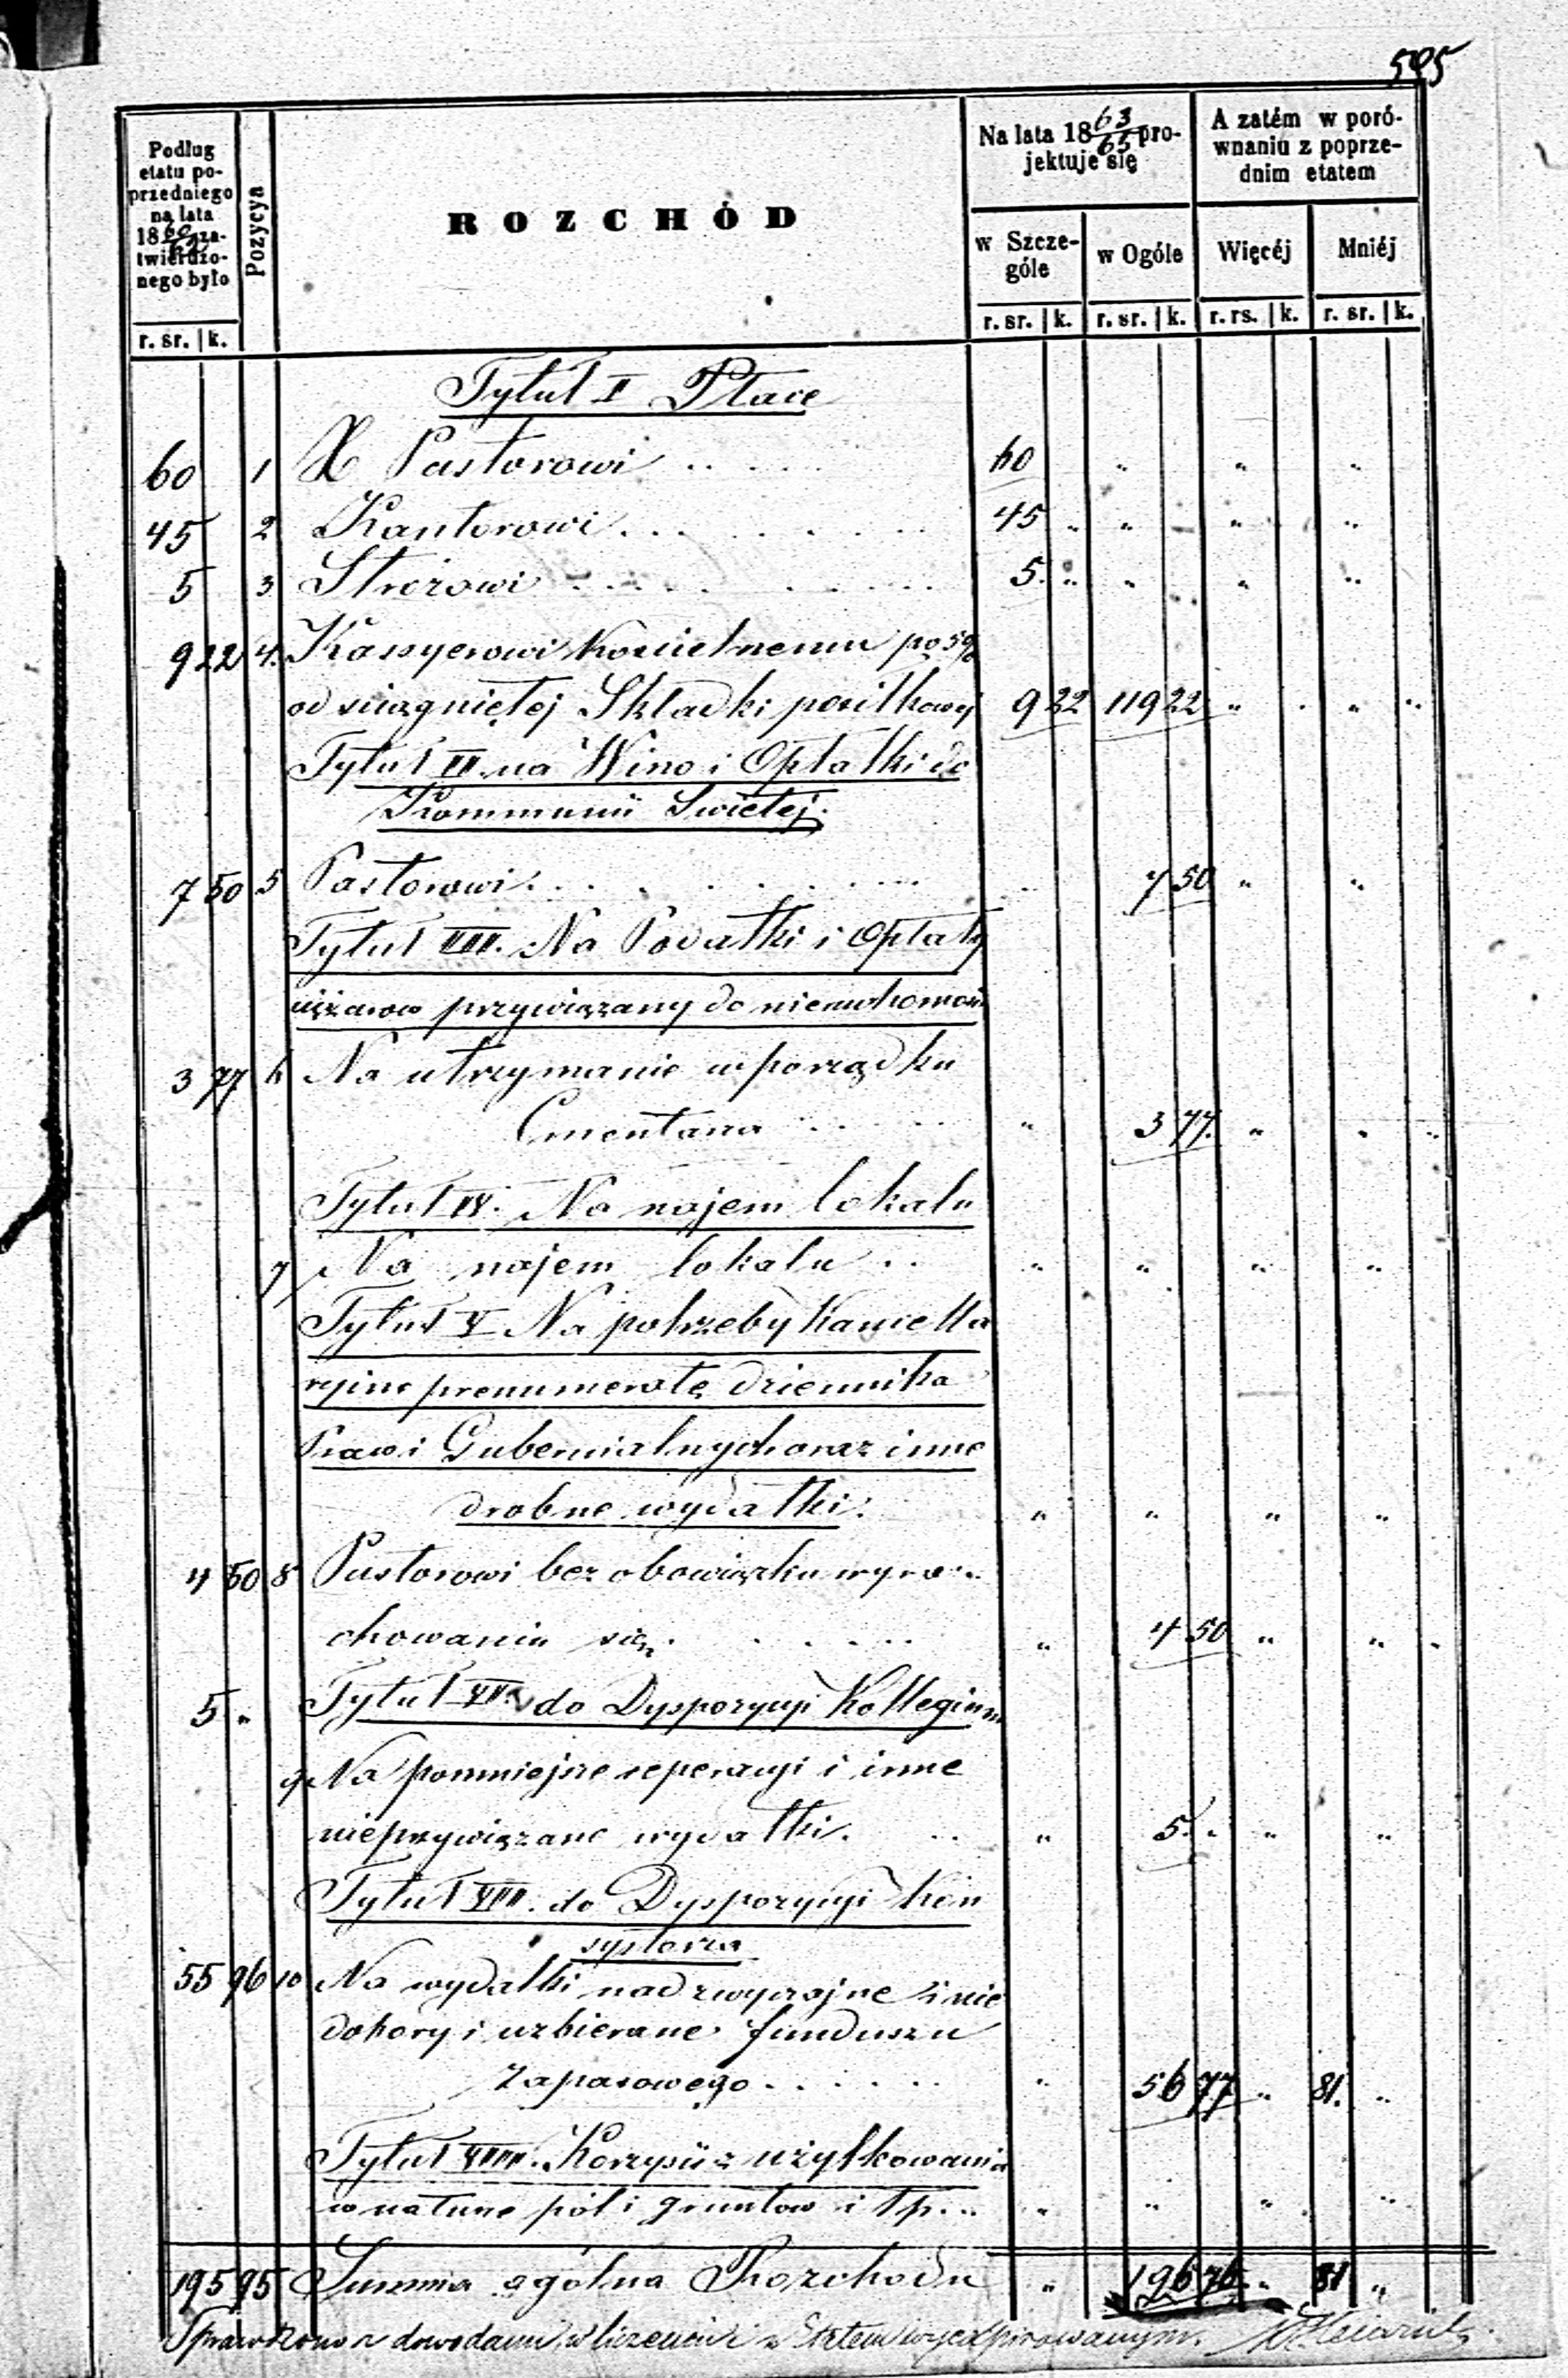 595
Podług etatu poprzedniego na lata 1860/62 zatwierdzonego było
Pozycya
ROZCHÓD
Na lata 1863/65 projektuje się
A zatém w porównaniu z poprzednim etatem
w Szczególe
w Ogóle
Więcéj
Mniéj
r. sr. k. r. sr. k. r. sr. k. r. rs. k. r. sr. k.
Tytuł I Płace
60 1 X Pastorowi . . . . . 60 " " "
45 2 Kantorowi . . . . . . 45 " " " "
5 3 Stróżowi . . . . . . 5. " " " "
9 22 4. Kassyerowi Kościelnemu po 5%
od ściągniętej Składki posiłkowej 9 22 119 22 " " "
Tytuł II. na Wino i Opłatki do
Kommunii Swiętej.
7 50 5 Pastorowi . . . . . . 7 50 " "
Tytuł III. Na Podatki i Opłaty
przywiązany do nieruchomości
3 77 6 Na utrzymanie w porządku
Cmentarza . . . . . " 3 77. " " "
Tytuł IV. Na najem lokalu
7 Na najem lokalu . . " " " "
Tytuł V Na potrzeby Kancella
ryine prenumeratę dziennika
Praw i Gubernialnych oraz inne
drobne wydatki. " " " "
4 50 8 Pastorowi bez obowiązku wyra-
chowania się. . . . . . " 4 50 " " "
5 " Tytuł VI. do Dyspozycyi Kollegium
9 Na pomniejsze reperacyi i inne
nieprzywiązane wydatki. . . " 5. " " "
Tytuł VII. do Dyspozycyi Kon
systorza
55 96 10 Na wydatki nadzwyczajne i nie
dobory i uzbierane funduszu
Zapasowego . . . . . . " 56 77 " 81. "
Tytuł VIII. Korzyści z użytkowania
w naturze pól i gruntow i t p. . . " " " "
195 95 Summa ogólna Rozchodu " 196 76 " 81 "
Sprawdzono z dowodami w liczeniu i z Etatem wyexpirowanym.